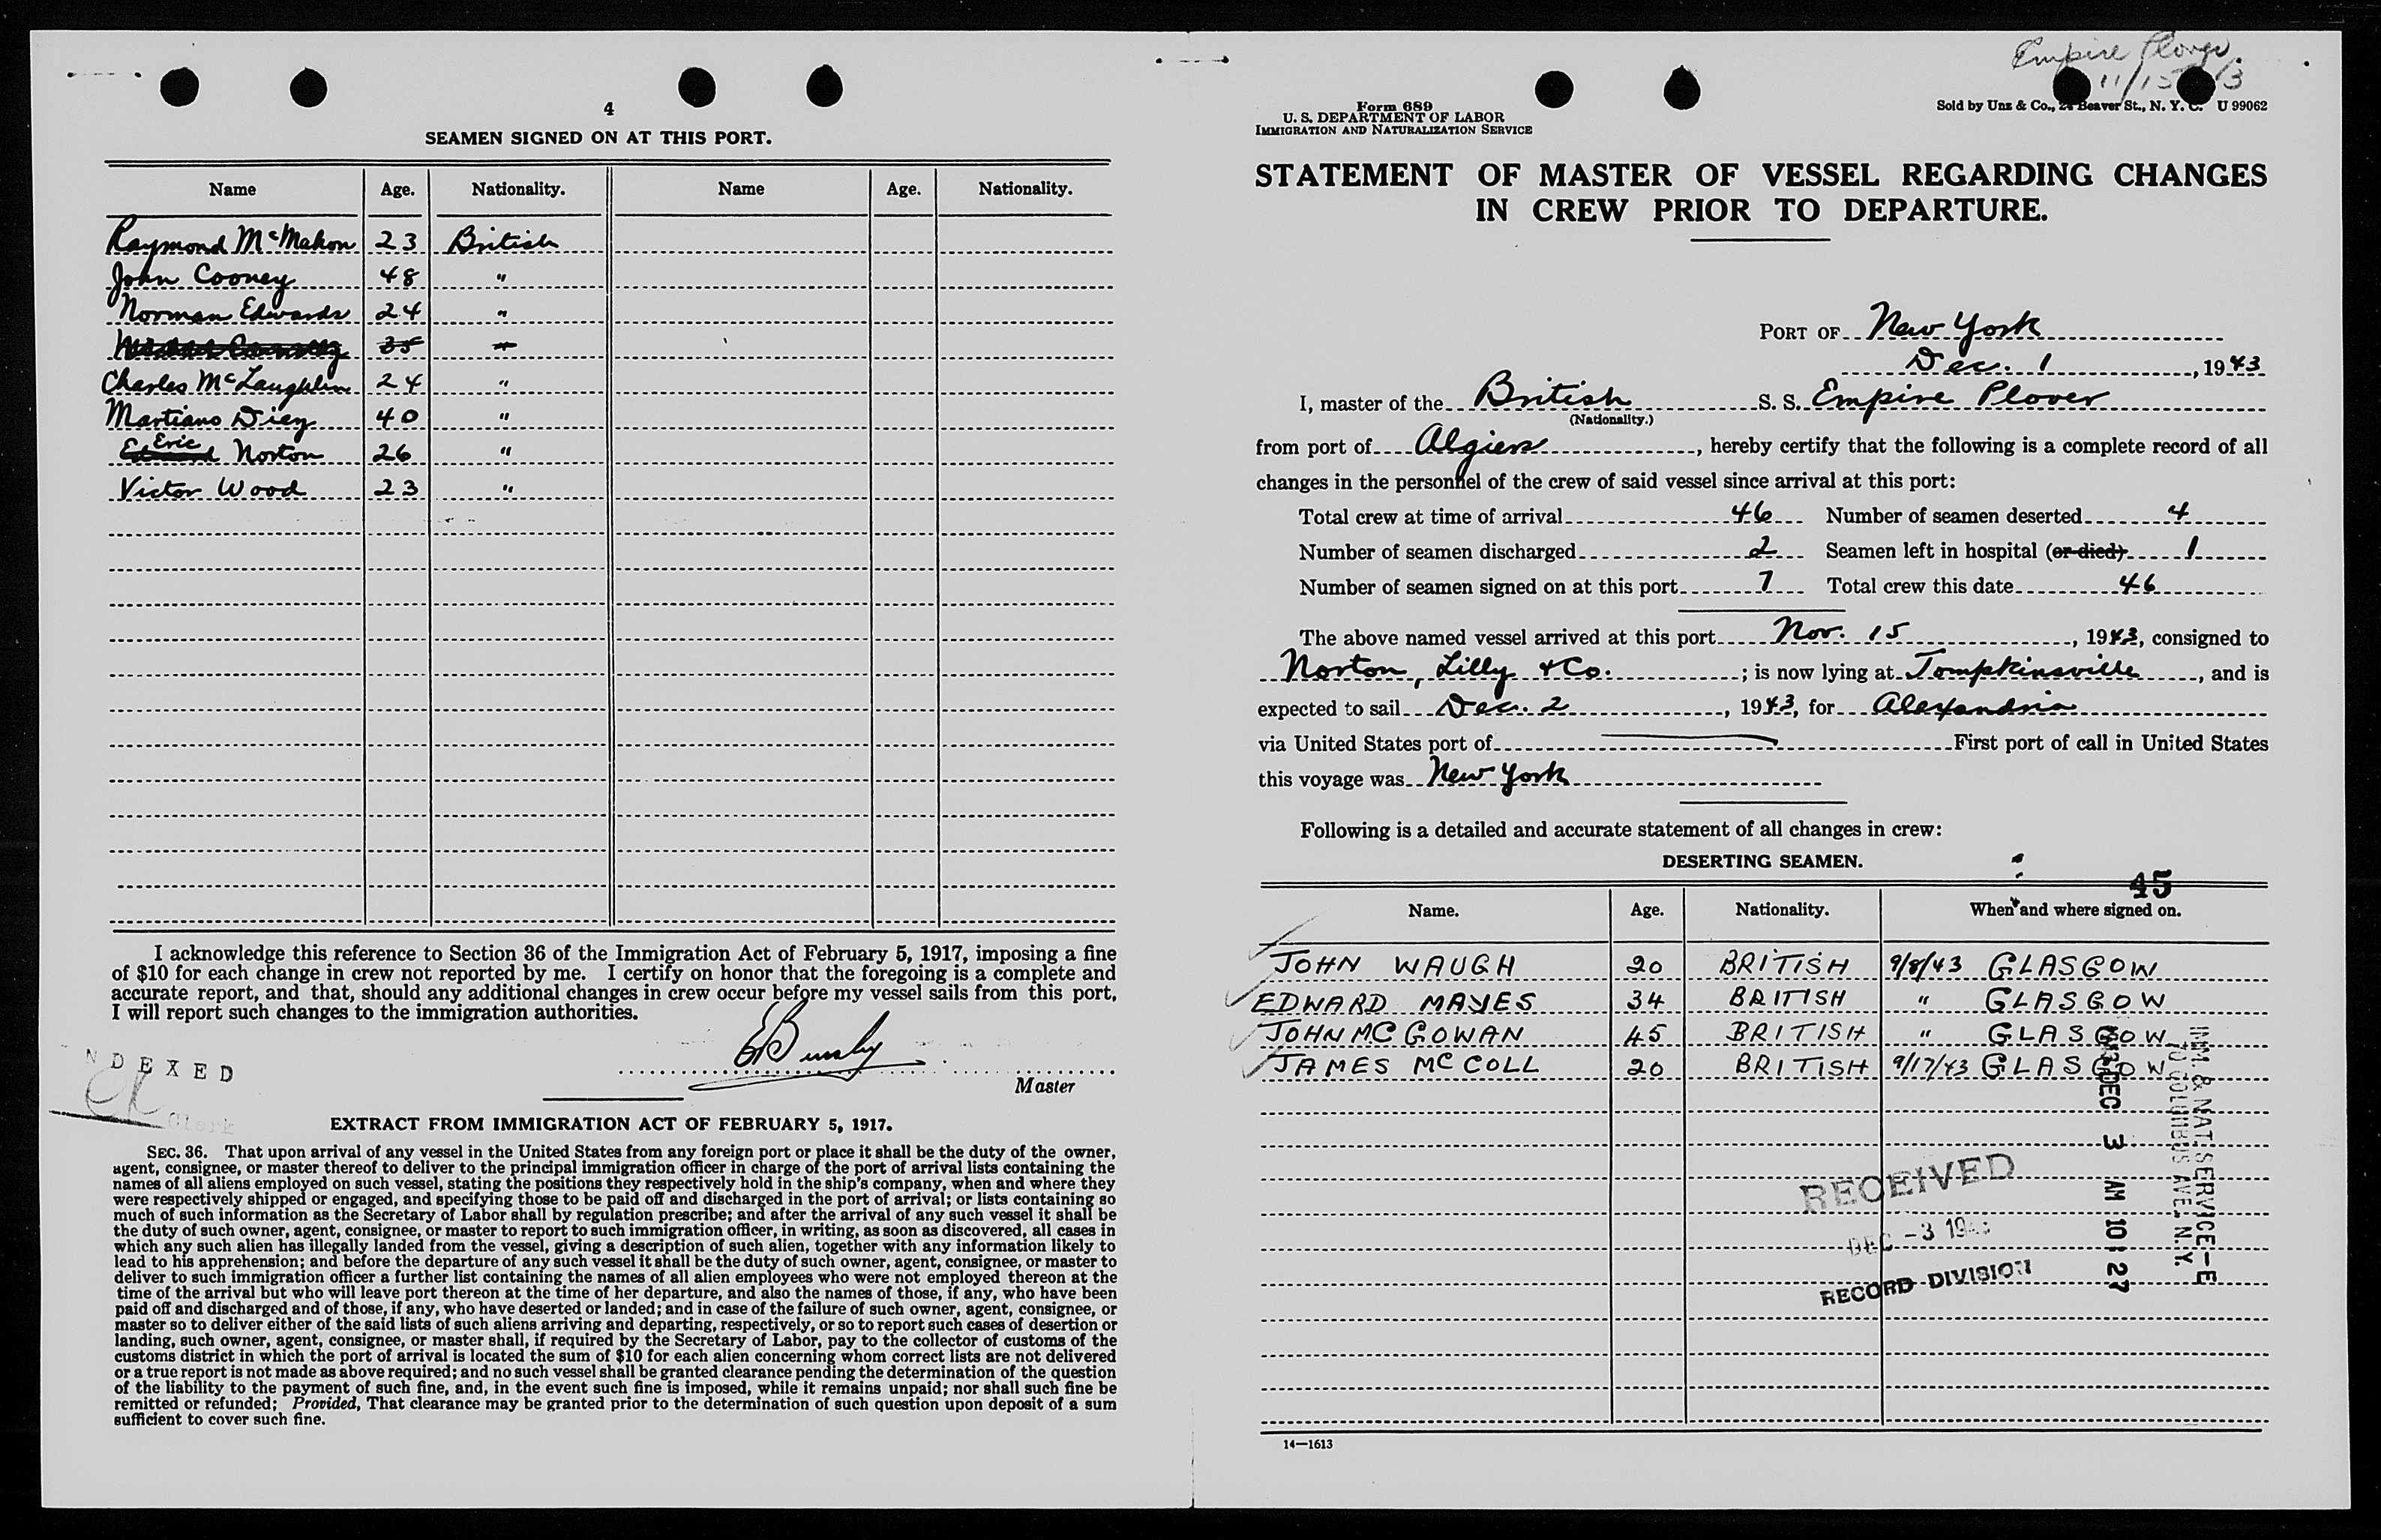 4
SEAMEN SIGNED ON AT THIS PORT.
Name Age. Nationality. Name Age. Nationality.
Raymond McMahon 23 British
John Cooney 48 "
Norman Edwards 24 "
35 "
Charles McLaughlin 24 "
Martiano Diey 40 "
Eric
Edward Norton 26 "
Victor Wood 23 "
I acknowledge this reference to Section 36 of the Immigration Act of February 5, 1917, imposing a fine
of $10 for each change in crew not reported by me. I certify on honor that the foregoing is a complete and
accurate report, and that, should any additional changes in crew occur before my vessel sails from this port,
I will report such changes to the immigration authorities.
NDEXED
Clerk
Master
EXTRACT FROM IMMIGRATION ACT OF FEBRUARY 5, 1917.
SEC. 36. That upon arrival of any vessel in the United States from any foreign port or place it shall be the duty of the owner,
agent, consignee, or master thereof to deliver to the principal immigration officer in charge of the port of arrival lists containing the
names of all aliens employed on such vessel, stating the positions they respectively hold in the ship's company, when and where they
were respectively shipped or engaged, and specifying those to be paid off and discharged in the port of arrival; or lists containing so
much of such information as the Secretary of Labor shall by regulation prescribe; and after the arrival of any such vessel it shall be
the duty of such owner, agent, consignee, or master to report to such immigration officer, in writing, as soon as discovered, all cases in
which any such alien has illegally landed from the vessel, giving a description of such alien, together with any information likely to
lead to his apprehension; and before the departure of any such vessel it shall be the duty of such owner, agent, consignee, or master to
deliver to such immigration officer a further list containing the names of all alien employees who were not employed thereon at the
time of the arrival but who will leave port thereon at the time of her departure, and also the names of those, if any, who have been
paid off and discharged and of those, if any, who have deserted or landed; and in case of the failure of such owner, agent, consignee, or
master so to deliver either of the said lists of such aliens arriving and departing, respectively, or so to report such cases of desertion or
landing, such owner, agent, consignee, or master shall, if required by the Secretary of Labor, pay to the collector of customs of the
customs district in which the port of arrival is located the sum of $10 for each alien concerning whom correct lists are not delivered
or a true report is not made as above required; and no such vessel shall be granted clearance pending the determination of the question
of the liability to the payment of such fine, and, in the event such fine is imposed, while it remains unpaid; nor shall such fine be
remitted or refunded; Provided, That clearance may be granted prior to the determination of such question upon deposit of a sum
sufficient to cover such fine.
Empire Plover
11/15 /3
Form 689
U. S. DEPARTMENT OF LABOR
IMMIGRATION AND NATURALIZATION SERVICE
Sold by Unz & Co., 24 Beaver St., N. Y. C. U 99062
STATEMENT OF MASTER OF VESSEL REGARDING CHANGES
IN CREW PRIOR TO DEPARTURE.
PORT OF New York
Dec. 1, 1943
I, master of the British S. S. Empire Plover
(Nationality.)
from port of Algiers, hereby certify that the following is a complete record of all
changes in the personnel of the crew of said vessel since arrival at this port:
Total crew at time of arrival 46 Number of seamen deserted 4
Number of seamen discharged 2 Seamen left in hospital (or died) 1
Number of seamen signed on at this port 7 Total crew this date 46
The above named vessel arrived at this port Nov. 15, 1943, consigned to
Norton, Lilly & Co.; is now lying at Tompkinsville, and is
expected to sail Dec. 2, 1943, for Alexandria
via United States port of First port of call in United States
this voyage was New York
Following is a detailed and accurate statement of all changes in crew:
DESERTING SEAMEN.
45
Name. Age. Nationality. When and where signed on.
JOHN WAUGH 20 BRITISH 9/8/43 GLASGOW
EDWARD MAYES 34 BRITISH " GLASGOW
JOHN MC GOWAN 45 BRITISH " GLASGOW
JAMES MC COLL 20 BRITISH 9/17/43 GLASGOW
RECEIVED
DEC -3 194
RECORD DIVISION
1943 DEC 3 AM 10:27
IMM. & NAT. SERVICE-E
70 COLUMBUS AVE. N.Y.
14—1613